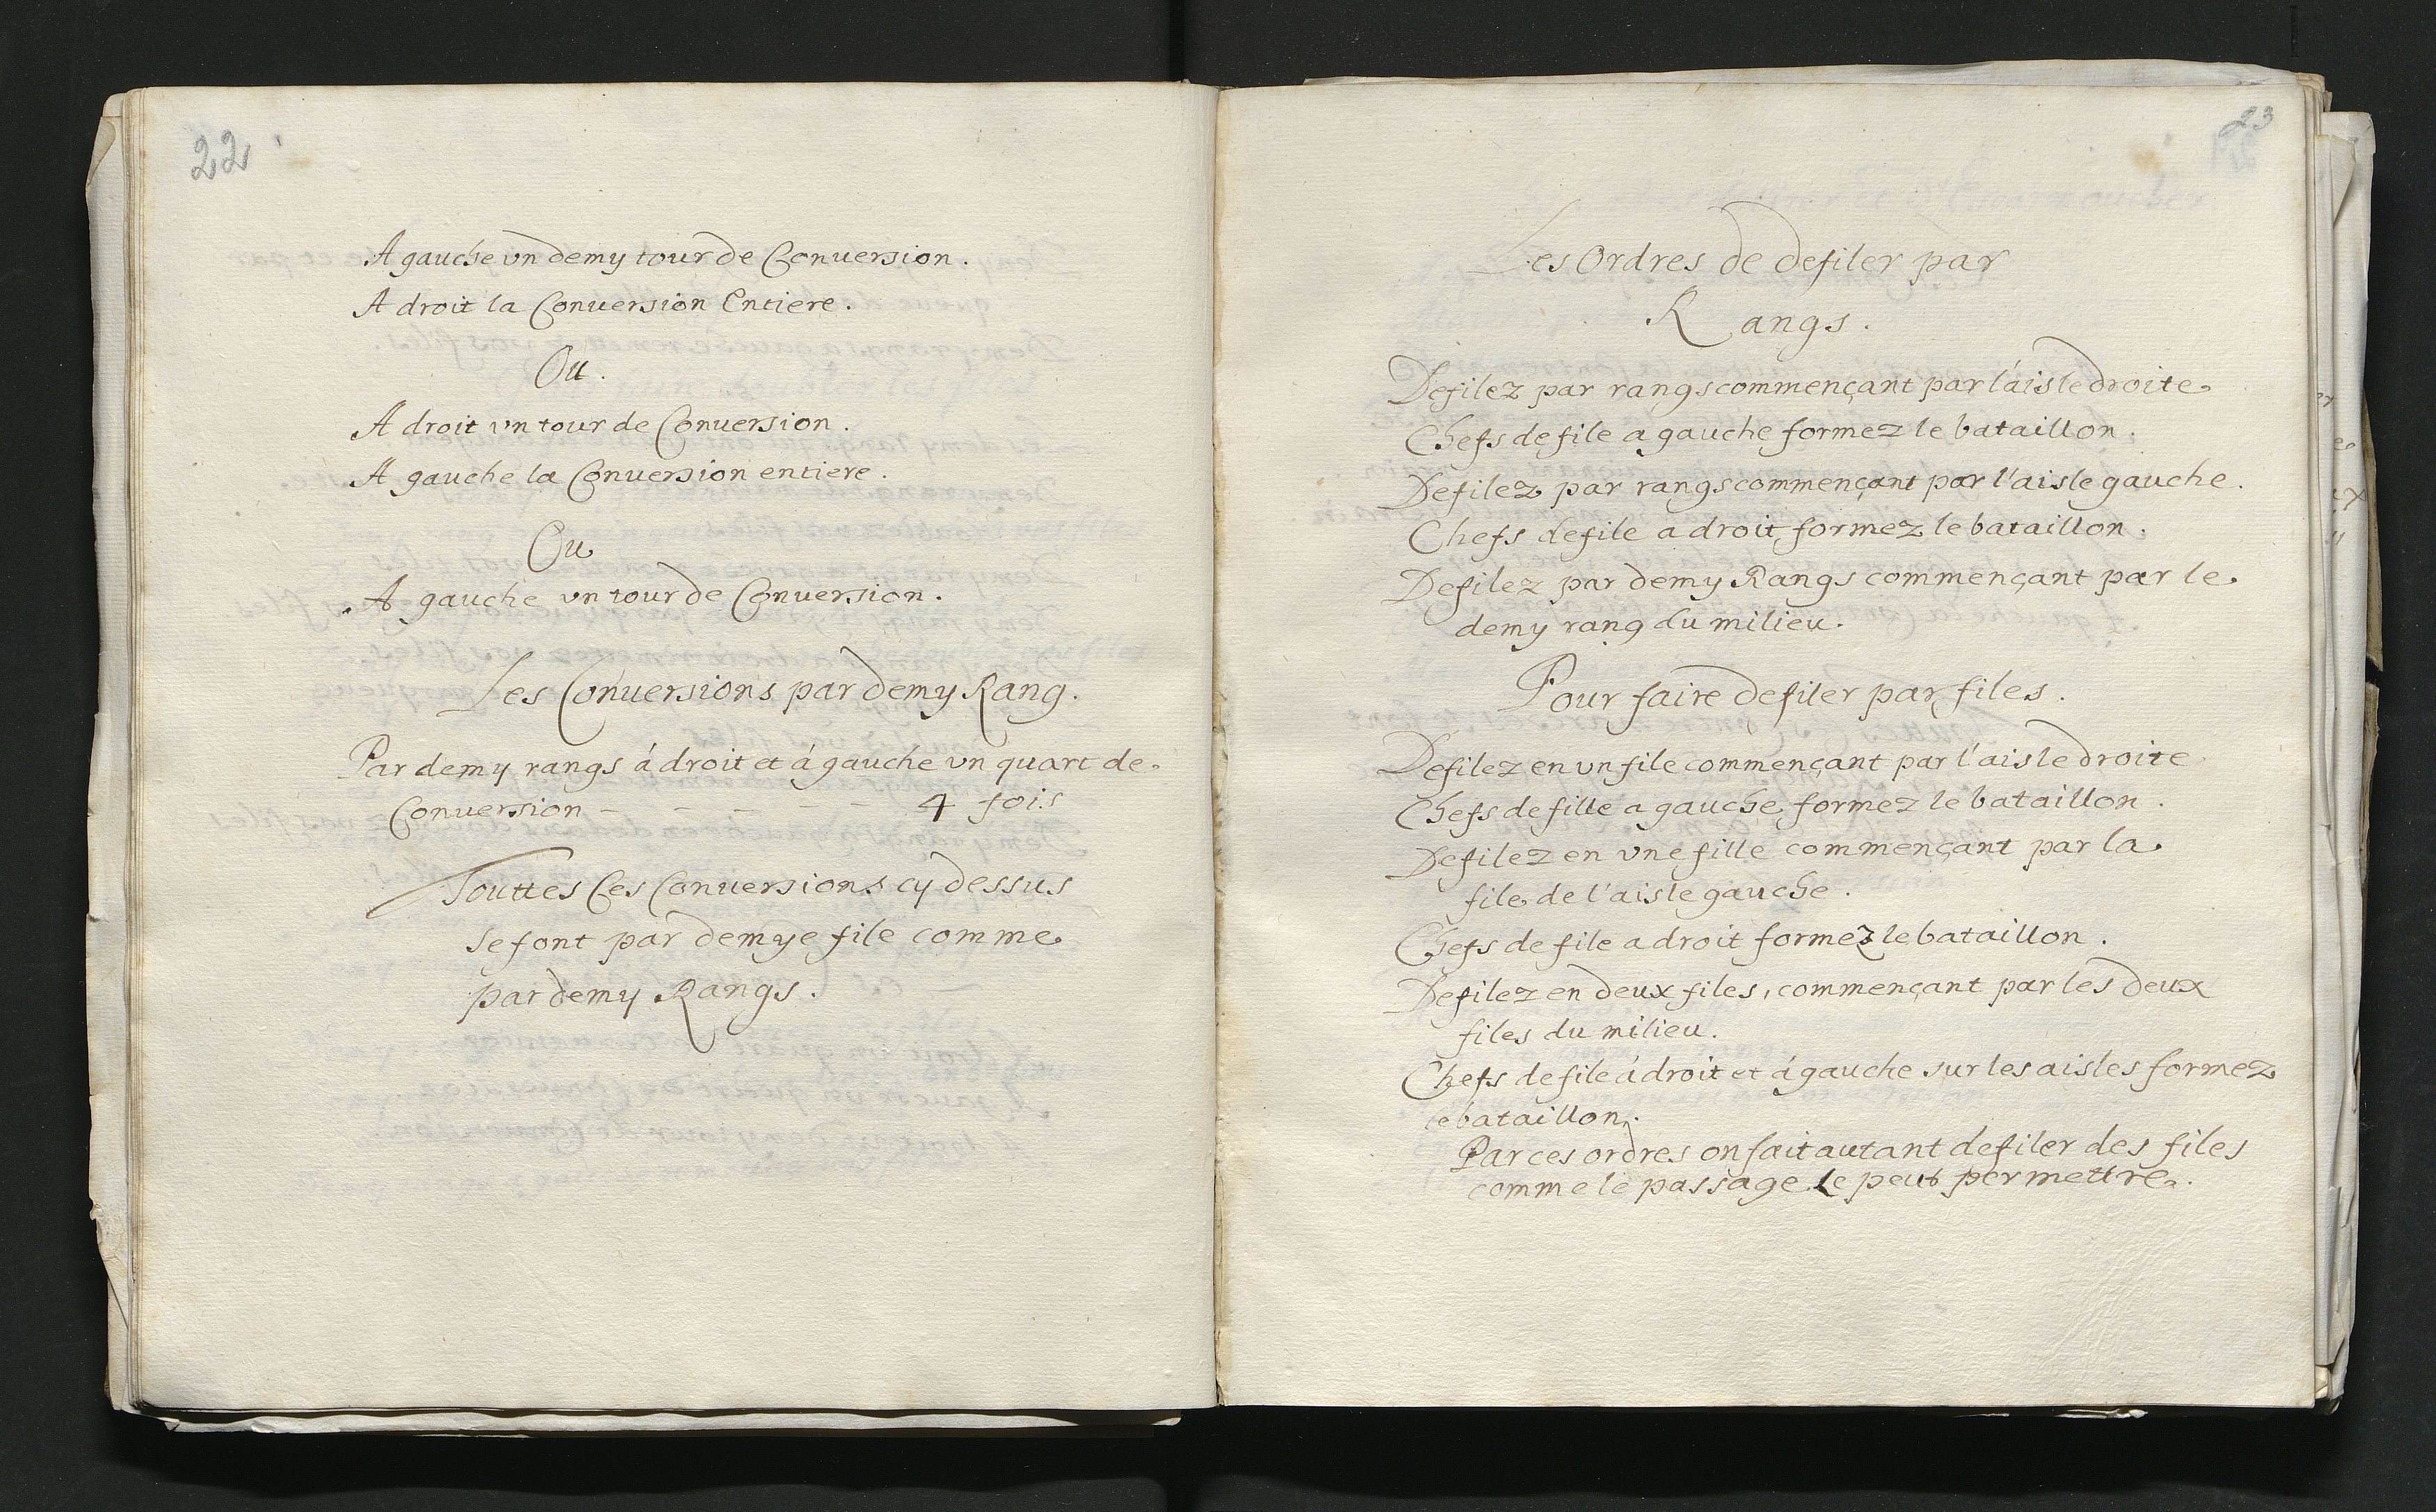 22
A gauche vn demy tour de Conuersion.
A droit la Conuersion Entiere.
Ou.
A droit vn tour de Conuersion.
A gauche la Conuersion entiere.
Ou
A gauche vn tour de Conuersion.
Les Conuersions par demy Rang.
Par demy rangs á droit et á gauche vn quart de
Conuersion - - - - 4 fois
Touttes Ces Conuersions cy dessus
se font par demye file comme
par demy Rangs.
23
Les Ordres de defiler par
Rangs.
Defilez par rangs commençant par l'aisle droite
Chefs de file a gauche formez le bataillon.
Defilez par rangs commençant par l'aisle gauche.
Chefs de file a droit formez le bataillon.
Defilez par demy Rangs commençant par le
demy rang du milieu.
Pour faire defiler par files.
Defilez en vn file commençant par l'aisle droite
Chefs de fille a gauche formez le bataillon.
Defilez en vne fille commençant par la
file de l'aisle gauche.
Chefs de file a droit formez le bataillon.
Defilez en deux files, commençant par les deux
files du milieu.
Chefs de file á droit et á gauche sur les aisles formez
le bataillon.
Par ces ordres on fait autant defiler des files
comme le passage le peut permettre.